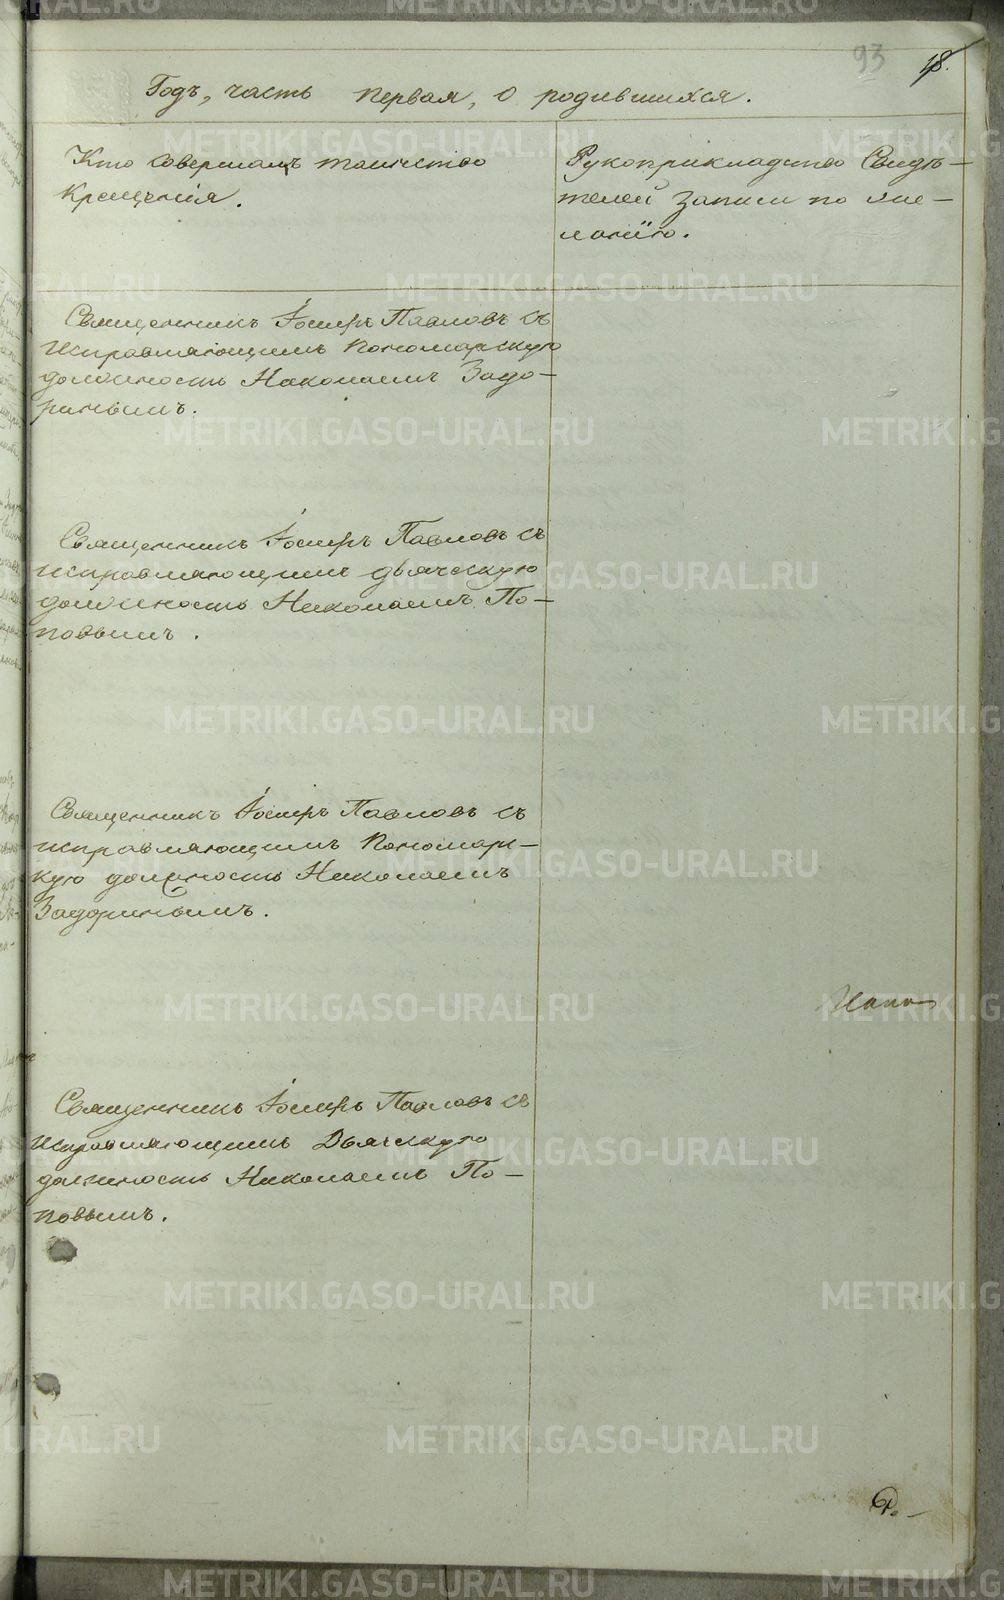 93
18.
Годъ, часть первая, о родившихся.
Кто совершалъ таинство
крещенія.
Рукоприкладство Свидѣ-
телей записи по же-
ланію.
Священникъ Іосифъ Павловъ съ
исправляющимъ пономарскую
должность Николаемъ Задо-
ринымъ.
Священникъ Іосифъ Павловъ съ
исправляющимъ дьячскую
должность Николаемъ По-
повымъ.
Священникъ Іосифъ Павловъ съ
исправляющимъ пономарс-
кую должность Николаемъ
Задоринымъ.
Священникъ Іосифъ Павловъ съ
исправляющимъ Дьячскую
должность Николаемъ По-
повымъ.
METRIKI.GASO-URAL.RU